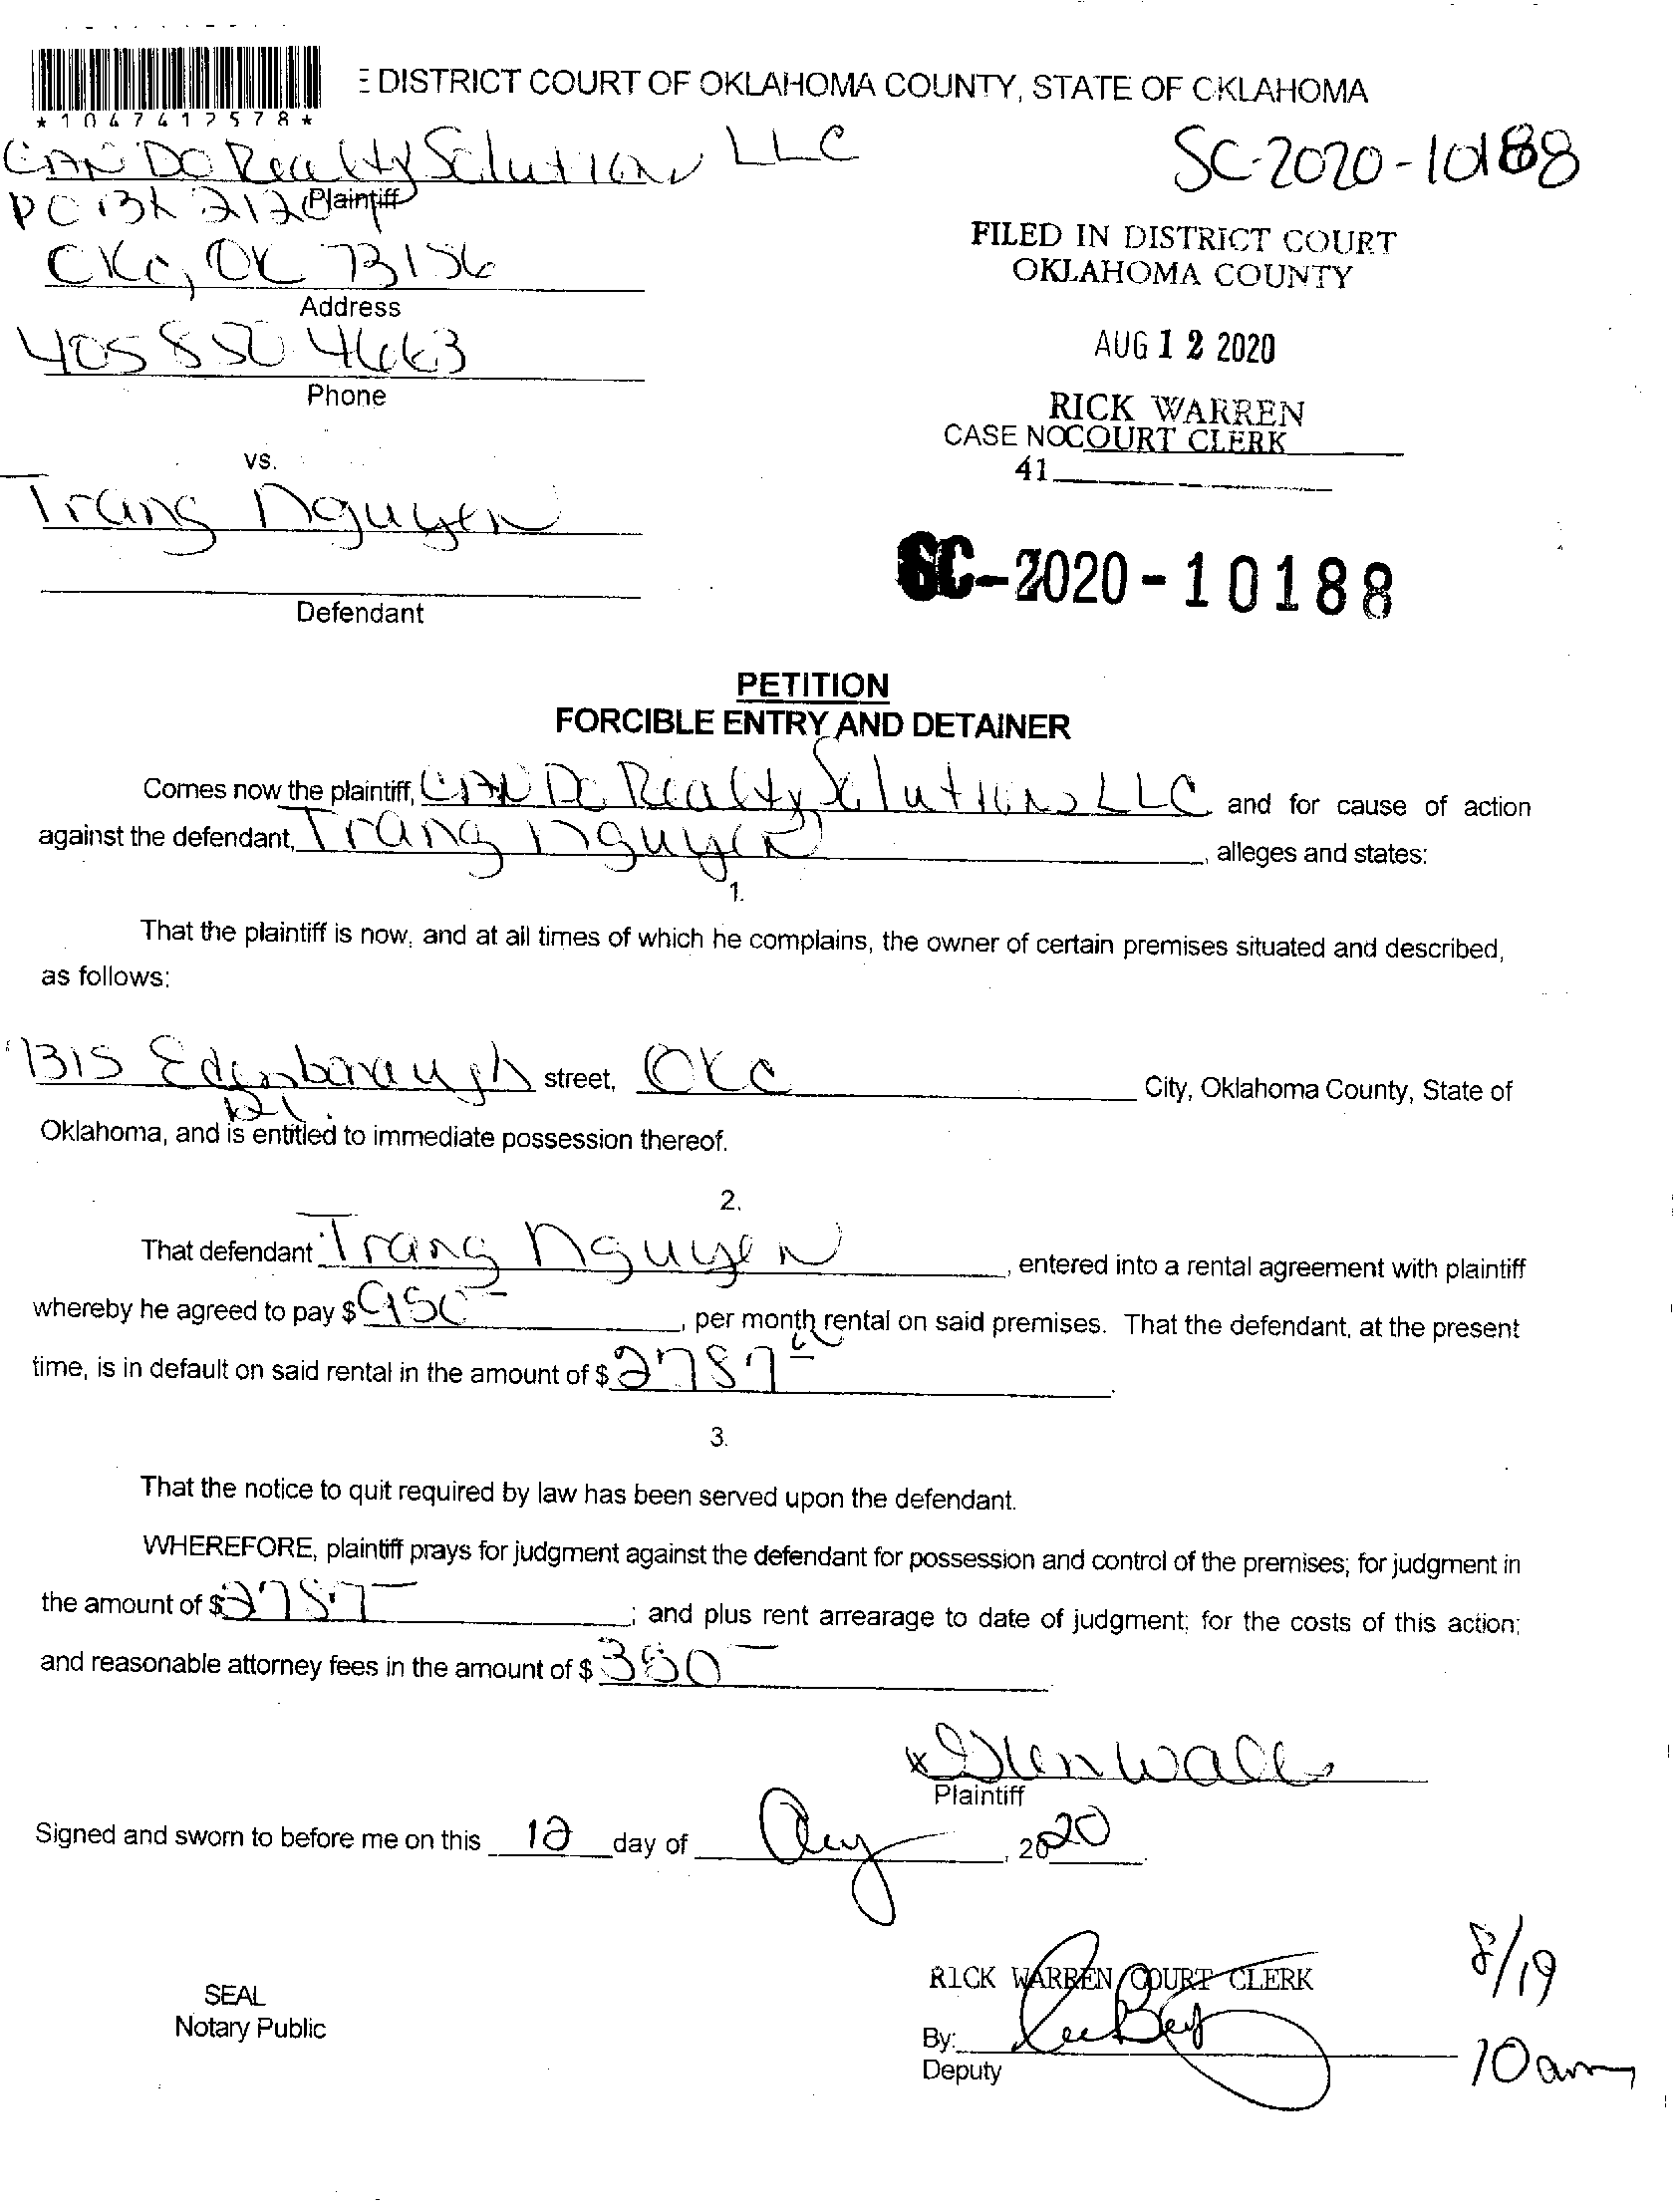 E DISTRICT COURT OF OKLAHOMA COUNTY, STATE OF OKLAHOMA
*1047412578*
CAN DO Realty Solutions LLC
SC-2020-10188
Plaintiff
PO BX 2120
OKC, OK 73156
Address
405 850 4663
Phone
FILED IN DISTRICT COURT
OKLAHOMA COUNTY
AUG 12 2020
RICK WARREN
CASE NO COURT CLERK
41
vs.
Trang Nguyen
Defendant
SC-2020-10188
PETITION
FORCIBLE ENTRY AND DETAINER
Comes now the plaintiff, CAN DO Realty Solutions LLC and for cause of action
against the defendant, Trang Nguyen, alleges and states:
1.
That the plaintiff is now, and at all times of which he complains, the owner of certain premises situated and described,
as follows:
street, OKC City, Oklahoma County, State of
Oklahoma, and is entitled to immediate possession thereof.
2.
That defendant Trang Nguyen, entered into a rental agreement with plaintiff
whereby he agreed to pay $950-, per month rental on said premises. That the defendant, at the present
time, is in default on said rental in the amount of $2787.
3.
That the notice to quit required by law has been served upon the defendant.
WHEREFORE, plaintiff prays for judgment against the defendant for possession and control of the premises; for judgment in
the amount of $2787-; and plus rent arrearage to date of judgment; for the costs of this action;
and reasonable attorney fees in the amount of $
Plaintiff
Signed and sworn to before me on this 12 day of Aug, 2020.
8/19
10am
SEAL
Notary Public
RICK WARREN COURT CLERK
By:
Deputy